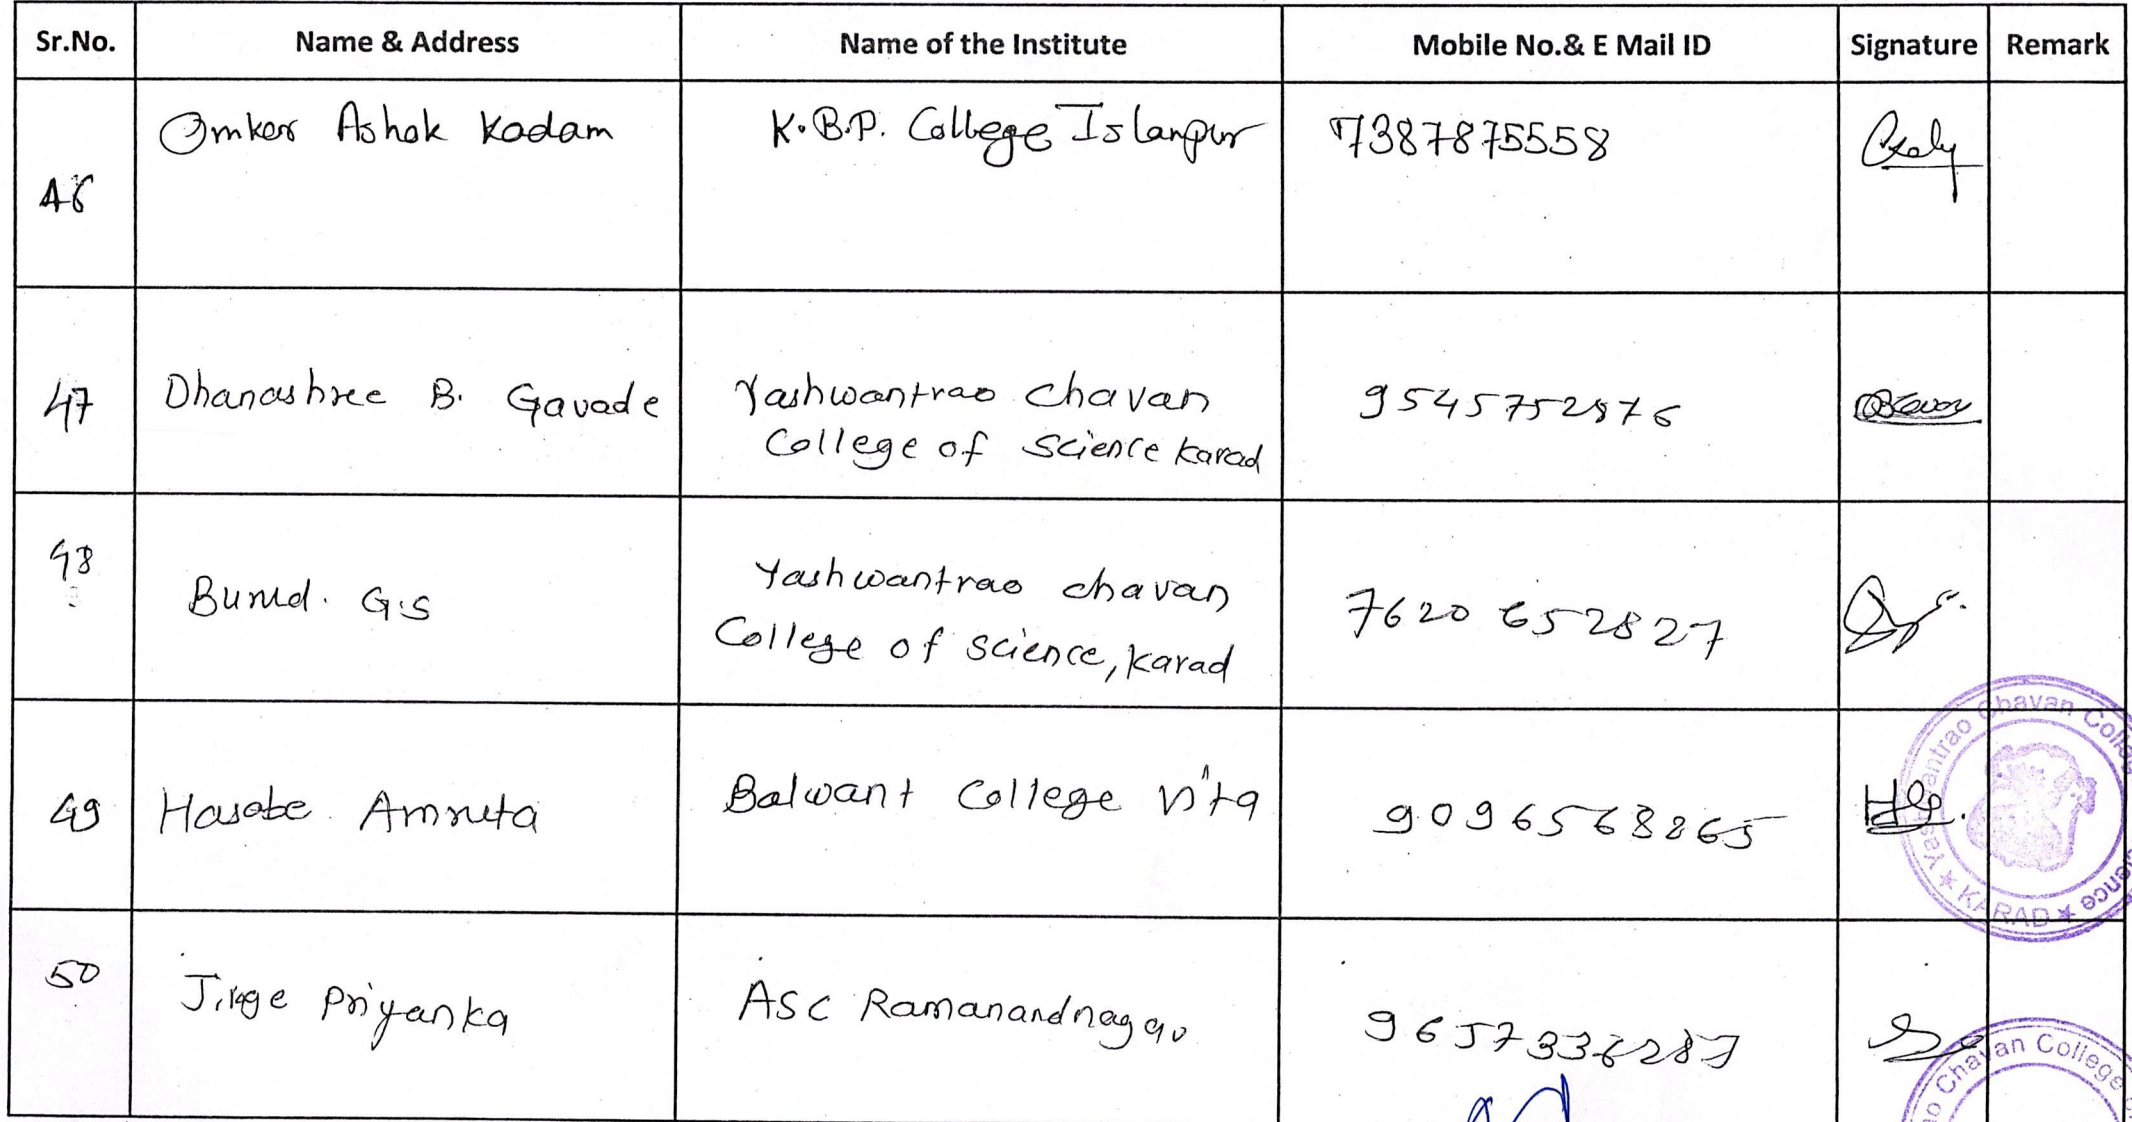 Sr.No. Name & Address Name of the Institute Mobile No.& E Mail ID Signature Remark
46 Omkar Ashok Kadam K.B.P. College Islampur 7387875558
47 Dhanashree B. Gavade Yashwantrao Chavan 9545752876
College of Science Karad
48 G.S Yashwantrao chavan 7620 652827
College of science, Karad
49 Hasabe Amruta Balwant College Vita 9096568865
50 Jirge Priyanka ASC Ramanandnagar 9657336287
Yashwantrao Chavan College
Science
★ KARAD ★
Chavan College